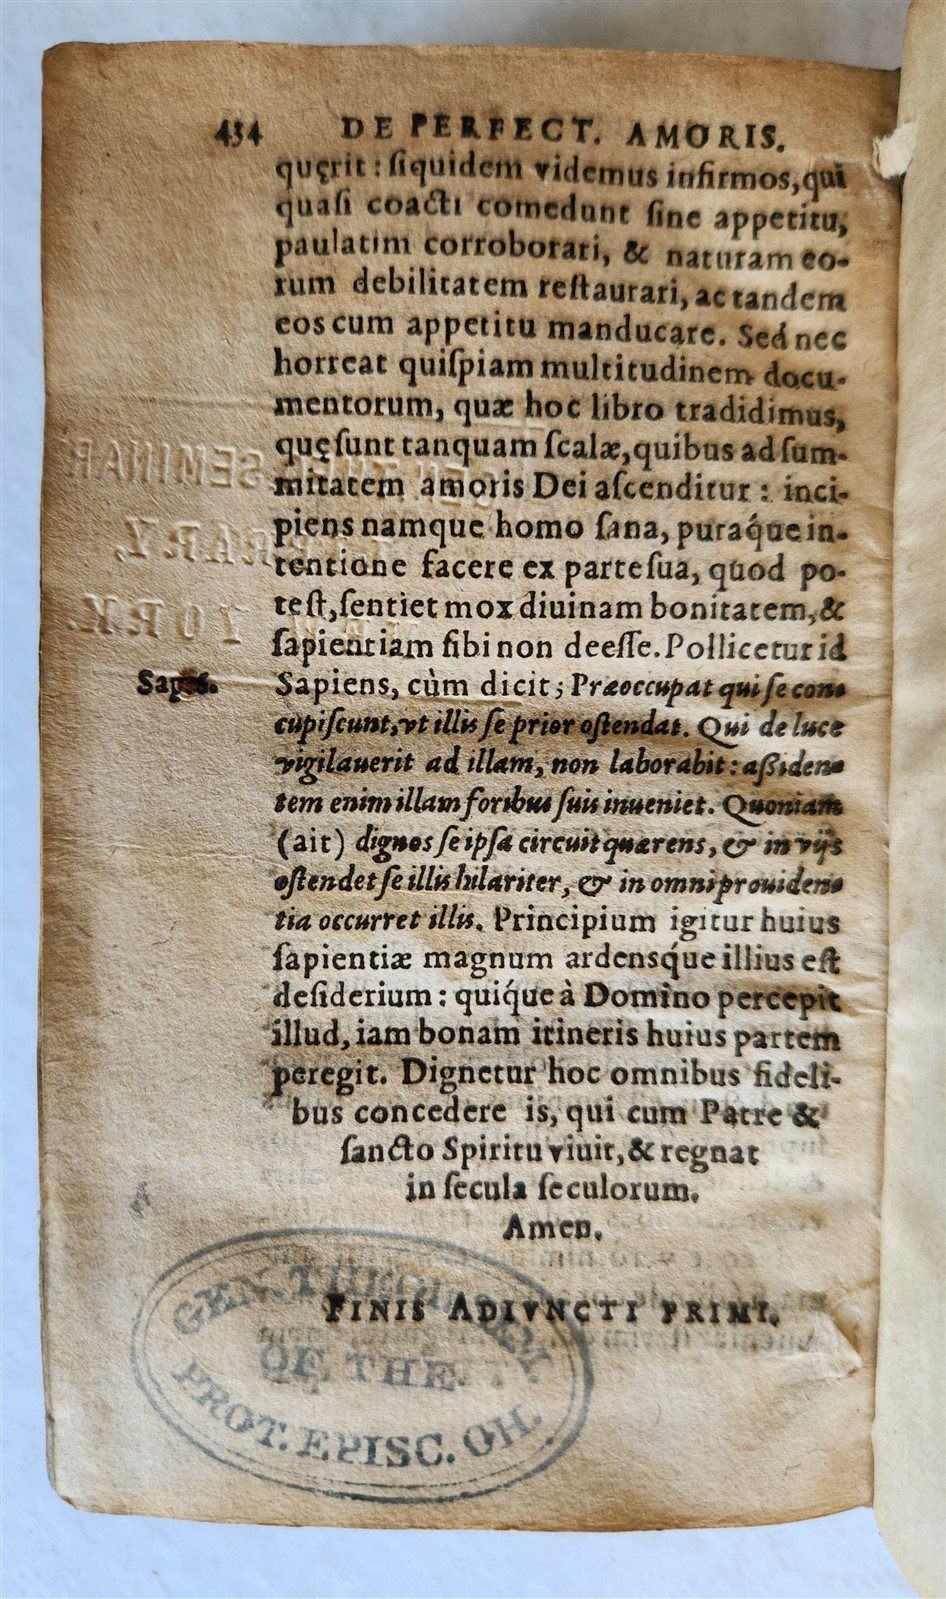 434 DE PERFECT. AMORIS.
quęrit : ſiquidem videmus infirmos, qui
quaſi coacti comedunt ſine appetitu,
paulatim corroborari, & naturam eo-
rum debilitatem reſtaurari, ac tandem
eos cum appetitu manducare. Sed nec
horreat quiſpiam multitudinem docu-
mentorum, quæ hoc libro tradidimus,
quę ſunt tanquam ſcalæ, quibus ad ſum-
mitatem amoris Dei aſcenditur : inci-
piens namque homo ſana, puraq́ue in-
tentione facere ex parte ſua, quod po-
teſt, ſentiet mox diuinam bonitatem, &
ſapientiam ſibi non deeſſe. Pollicetur id
Sap. 6. Sapiens, cùm dicit; Præoccupat qui ſe con-
cupiſcunt, vt illis ſe prior oſtendat. Qui de luce
vigilauerit ad illam, non laborabit : aßiden-
tem enim illam foribus ſuis inueniet. Quoniam
(ait) dignos ſe ipſa circuit quærens, & in vijs
oſtendet ſe illis hilariter, & in omni prouiden-
tia occurret illis. Principium igitur huius
ſapientiæ magnum ardensq́ue illius eſt
deſiderium : quiq́ue à Domino percepit
illud, iam bonam itineris huius partem
peregit. Dignetur hoc omnibus fideli-
bus concedere is, qui cum Patre &
ſancto Spiritu viuit, & regnat
in ſecula ſeculorum.
Amen.
FINIS ADIVNCTI PRIMI.
GEN. THEOL. SEM.
OF THE
PROT. EPISC. CH.
SEMINARY
LIBRARY,
YORK.